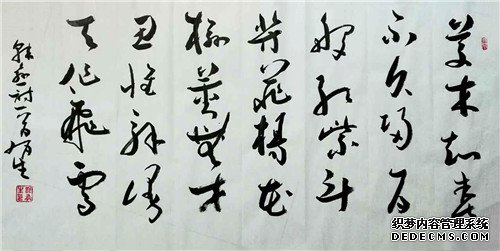 草木知春
不久歸百
般紅紫斗
芳菲楊花
榆莢無才
思惟解漫
天作飛雪
韓愈詩一首
织梦内容管理系统
DEDECMS.COM